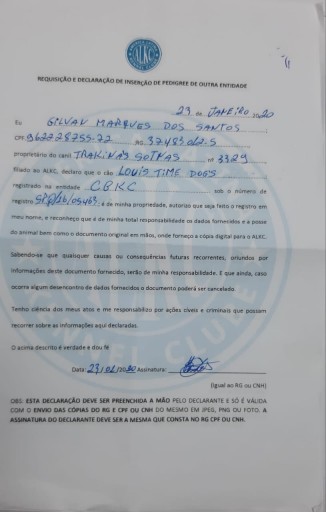 ALKC
REQUISIÇÃO E DECLARAÇÃO DE INSERÇÃO DE PEDIGREE DE OUTRA ENTIDADE
29 de JANEIRO 2020
Eu GILVAN MARQUES DOS SANTOS
CPF: 962228755-72 RG: 37485012-5
proprietário do canil TRAKINAS SOTNAS nº 3329
filiado ao ALKC, declaro que o cão LOUIS TIME DOGS
registrado na entidade CBKC sob o número de
registro ; é de minha propriedade, autorizo que seja feito o registro em
meu nome, e reconheço que é de minha total responsabilidade os dados fornecidos e a posse
do animal bem como o documento original em mãos, onde forneço a cópia digital para o ALKC.
Sabendo-se que quaisquer causas ou consequências futuras recorrentes, oriundos por
informações deste documento fornecido, serão de minha responsabilidade. E que ainda, caso
ocorra algum desencontro de dados fornecidos o documento poderá ser cancelado.
Tenho ciência dos meus atos e me responsabilizo por ações cíveis e criminais que possam
recorrer sobre as informações aqui declaradas.
O acima descrito é verdade e dou fé
Data: 29/01/2020 Assinatura:
(Igual ao RG ou CNH)
OBS: ESTA DECLARAÇÃO DEVE SER PREENCHIDA A MÃO PELO DECLARANTE E SÓ É VÁLIDA
COM O ENVIO DAS CÓPIAS DO RG E CPF OU CNH DO MESMO EM JPEG, PNG OU FOTO. A
ASSINATURA DO DECLARANTE DEVE SER A MESMA QUE CONSTA NO RG CPF OU CNH.